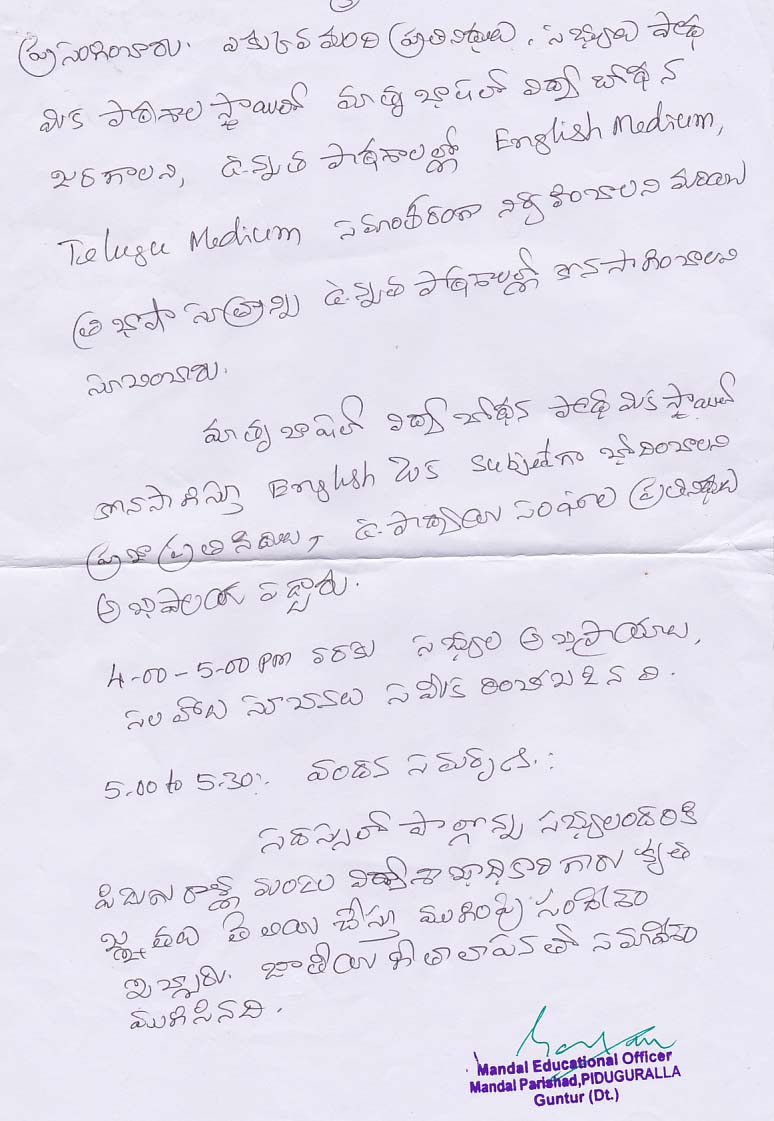 ప్రసంగించారు. ఎక్కువ మంది ప్రతినిధులు, సభ్యులు ప్రాథ
మిక పాఠశాల స్థాయిలో మాతృభాషలో విద్యా బోధన
జరగాలని, ఉన్నత పాఠశాలల్లో English Medium,
Telugu Medium సమాంతరంగా నిర్వహించాలని మరియు
త్రిభాషా సూత్రాన్ని ఉన్నత పాఠశాలల్లో కొనసాగించాలని
సూచించారు.
మాతృభాషలో విద్యా బోధన ప్రాథమిక స్థాయిలో
కొనసాగిస్తూ English ఒక subject గా బోధించాలని
ప్రజా ప్రతినిధులు, ఉపాధ్యాయ సంఘాల ప్రతినిధులు
అభిప్రాయ పడ్డారు.
4-00 - 5-00 pm వరకు సభ్యుల అభిప్రాయాలు,
సలహాలు సూచనలు సమీకరించబడినది.
5.00 to 5.30:. వందన సమర్పణ.:
సదస్సులో పాల్గొన్న సభ్యులందరికి
పిడుగురాళ్ళ మండల విద్యాశాఖాధికారి గారు కృత
జ్ఞతలు తెలియచేస్తూ ముగింపు సందేశం
ఇచ్చారు. జాతీయ గీతాలాపనతో సమావేశం
ముగిసినది.
Mandal Educational Officer
Mandal Parishad, PIDUGURALLA
Guntur (Dt.)